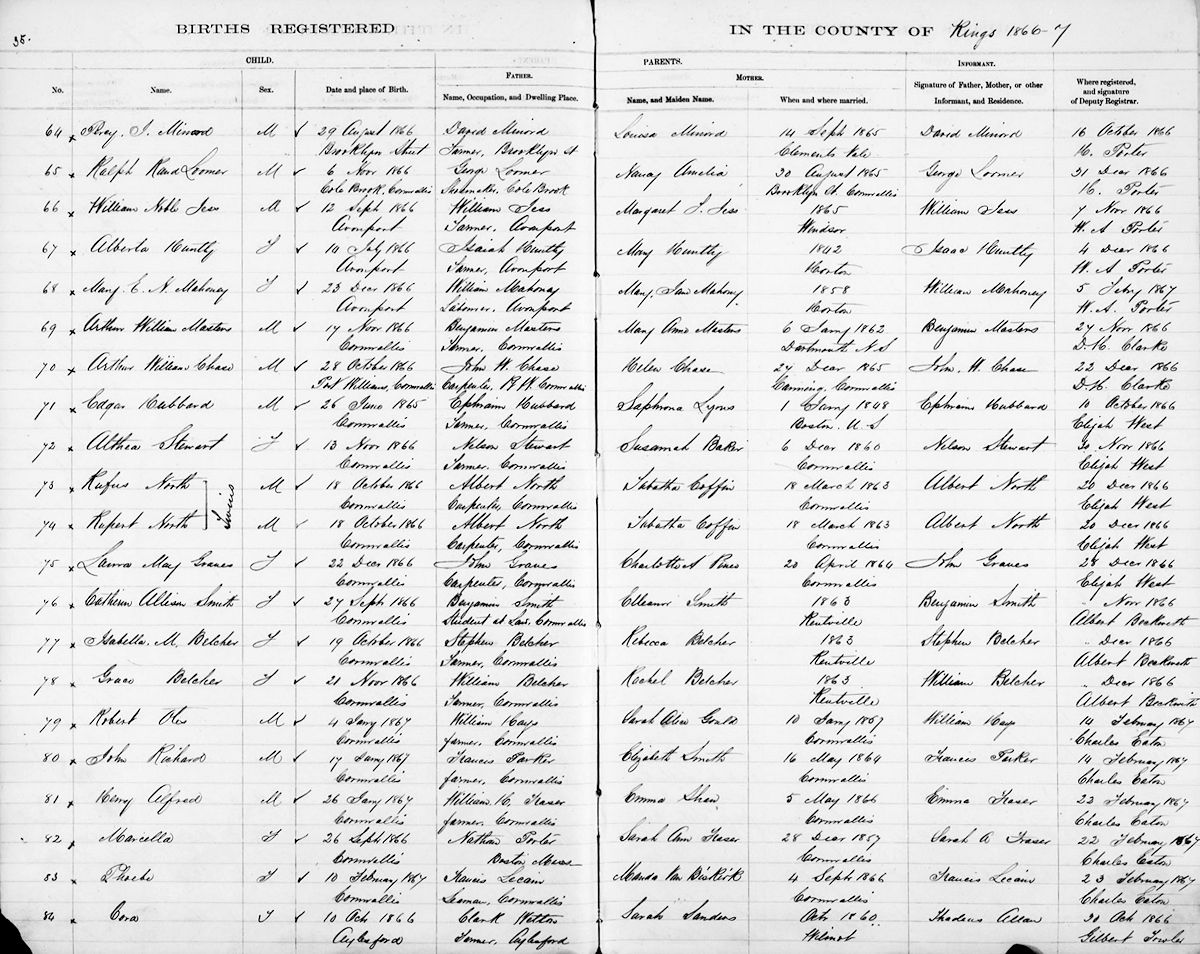 38.
BIRTHS REGISTERED IN THE COUNTY OF Kings 1866-7
CHILD. PARENTS.
FATHER. MOTHER. INFORMANT.
No. Name. Sex. Date and place of Birth. Name, Occupation, and Dwelling Place. Name, and Maiden Name. When and where married. Signature of Father, Mother, or other Informant, and Residence. Where registered, and signature of Deputy Registrar.
64 x I. Minord M ✓ 29 August 1866 David Minord Louisa Minord 14 Sept 1865 David Minord 16 October 1866
Brooklyn Street Farmer, Brooklyn St Clements Vale H. Porter
65 x Ralph Rand Loomer M ✓ 6 Novr 1866 George Loomer Nancy Amelia 20 August 1865 George Loomer 21 Decr 1866
Cole Brook, Cornwallis Shoemaker, Cole Brook Brooklyn St. Cornwallis H. Porter
66 x William Noble Jess M ✓ 12 Sept 1866 William Jess Margaret J. Jess 1865 William Jess 7 Novr 1866
Avonport Farmer, Avonport Windsor W. A. Porter
67 x Alberta Huntly F ✓ 14 July 1866 Isaiah Huntly Mary Huntly 1842 Isaac Huntly 4 Decr 1866
Avonport Farmer, Avonport Horton W. A. Porter
68 x Mary. E. N. Mahoney F ✓ 23 Decr 1866 William Mahoney Mary Jane Mahony 1858 William Mahoney 5 Jany 1867
Avonport Labourer, Avonport Horton W. A. Porter
69 x Arthur William Masters M ✓ 17 Novr 1866 Benjamin Masters Mary Anne Masters 6 Jany 1862 Benjamin Masters 27 Novr 1866
Cornwallis Farmer, Cornwallis Dartmouth N.S D.H. Clarke
70 x Arthur William Chase M ✓ 28 October 1866 John W. Chase Helen Chase 27 Decr 1865 John. W. Chase 22 Decr 1866
Port Williams, Cornwallis Carpenter, P. W. Cornwallis Canning, Cornwallis D.H. Clarke
71 x Edgar Hubbard M ✓ 26 June 1865 Ephraim Hubbard Saphrona Lyons 1 Jany 1848 Ephraim Hubbard 10 October 1866
Cornwallis Farmer, Cornwallis Boston. U. S Elijah West
72 x Althea Stewart F ✓ 13 Novr 1866 Nelson Stewart Susannah Baker 6 Decr 1860 Nelson Stewart 30 Novr 1866
Cornwallis Farmer. Cornwallis Cornwallis Elijah West
73 x Rufus North M ✓ 18 October 1866 Albert North Tabatha Coffin 18 March 1863 Albert North 20 Decr 1866
Twins
Cornwallis Carpenter, Cornwallis Cornwallis Elijah West
74 x Rupert North M ✓ 18 October 1866 Albert North Tabatha Coffin 18 March 1863 Albert North 20 Decr 1866
Cornwallis Carpenter, Cornwallis Cornwallis Elijah West
75 x Laura May Graves F ✓ 22 Decr 1866 John Graves Charlotte A Pineo 20 April 1864 John Graves 28 Decr 1866
Cornwallis Carpenter, Cornwallis Cornwallis Elijah West
76 x Catherine Allison Smith F ✓ 27 Sept 1866 Benjamin Smith Elleanor Smith 1863 Benjamin Smith " Novr 1866
Cornwallis Student at Law, Cornwallis Kentville Albert Beckwith
77 x Isabella. M. Belcher F ✓ 19 October 1866 Stephen Belcher Rebecca Belcher 1863 Stephen Belcher " Decr 1866
Cornwallis Farmer, Cornwallis Kentville Albert Beckwith
78 x Grace Belcher F ✓ 21 Novr 1866 William Belcher Rachel Belcher 1863 William Belcher " Decr 1866
Cornwallis Farmer. Cornwallis Kentville Albert Beckwith
79 x Robert Otis M ✓ 4 Jany 1867 William Kays Sarah Alice Gould 10 Jany 1857 William Kays 14 February 1867
Cornwallis farmer. Cornwallis Cornwallis Charles Eaton
80 x John Richard M ✓ 17 Jany 1867 Francis Parker Elizabeth Smith 16 May 1864 Francis Parker 14 February 1867
Cornwallis farmer. Cornwallis Cornwallis Charles Eaton
81 x Henry Alfred M ✓ 26 Jany 1867 William H. Fraser Emma Shaw 5 May 1866 Emma Fraser 22 February 1867
Cornwallis farmer. Cornwallis Cornwallis Charles Eaton
82 x Marcella F ✓ 26 Sept 1866 Nathan Porter Sarah Ann Fraser 28 Decr 1857 Sarah A Fraser 22 February 1867
Cornwallis Boston Mass Cornwallis Charles Eaton
83 x Phoebe F ✓ 10 February 1867 Francis Lecain Manda Van Biskirk 4 Sept 1866 Francis Lecain 23 February 1867
Cornwallis Seaman, Cornwallis Cornwallis Charles Eaton
84 x Cora F ✓ 10 Oct 1866 Clark Welton Sarah Sanders Octr 1860 Thadeus Allan 30 Oct 1866
Aylesford Farmer, Aylesford Wilmot Gilbert Fowler